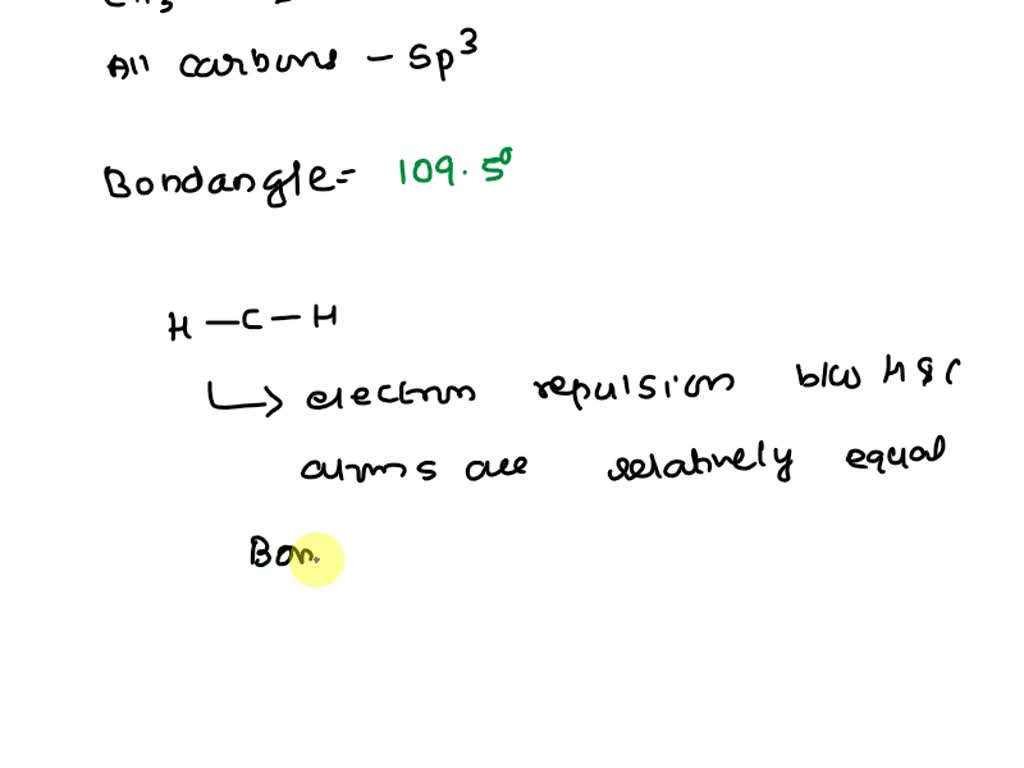 CH3
All carbons - Sp3
Bondangle= 109.5°
H-C-H
electron repulsion b/w H & C
atoms are relatively equal
Bon